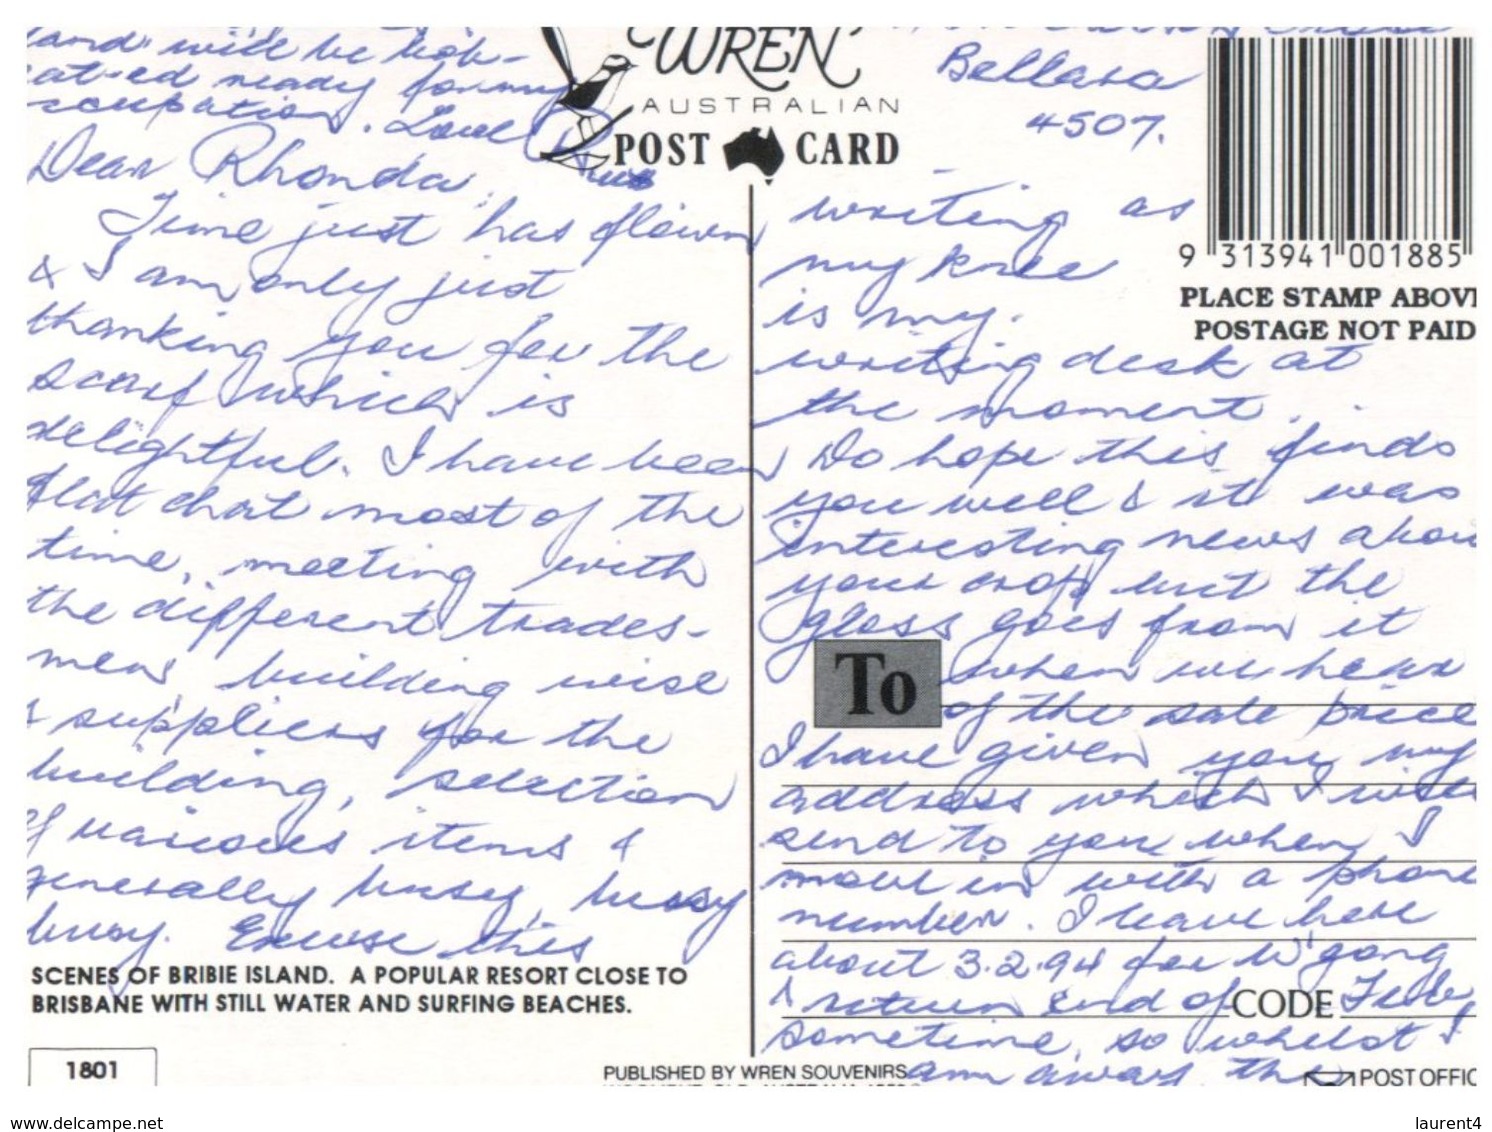 land will be lock-
at-ed ready for my
occupation. Love
WREN
AUSTRALIAN
POST CARD
Bellara
4507.
9 313941 001885
PLACE STAMP ABOV
POSTAGE NOT PAID
Dear Rhonda,
Time just has flown
& I am only just
thanking you for the
scarf which is
delightful. I have been
flat chat most of the
time, meeting with
the different trades-
men building wise
& suppliers for the
building, selection
of various items &
generally busy, busy
busy. Excuse this
writing as
my knee
is my
writing desk at
the moment.
Do hope this finds
you well & it was
interesting news abou
your crop but the
gloss goes from it
when we hear
of the sale price
I have given you my
address which I will
send to you when I
move in with a phone
number. I leave here
about 3.2.94 for W'gong
& return end of Feb
sometime, so whilst I
am away the
To
CODE
SCENES OF BRIBIE ISLAND. A POPULAR RESORT CLOSE TO
BRISBANE WITH STILL WATER AND SURFING BEACHES.
1801
PUBLISHED BY WREN SOUVENIRS
POST OFFIC
www.delcampe.net
laurent4